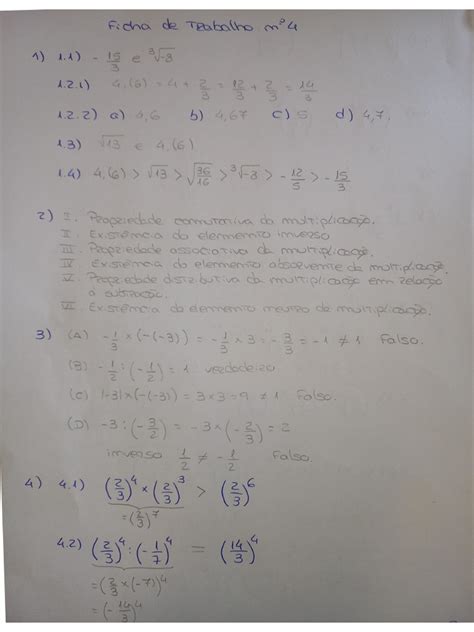 Ficha de Trabalho nº4
1) 1.1) - 15/3 e ³√-3
1.2.1) 4,(6) = 4 + 2/3 = 12/3 + 2/3 = 14/3
1.2.2) a) 4,6 b) 4,67 c) 5 d) 4,7.
1.3) √13 e 4,(6)
1.4) 4,(6) > √13 > √36/16 > ³√-3 > - 12/5 > - 15/3
2) I. Propriedade comutativa da multiplicação.
II. Existência do elemento inverso
III. Propriedade associativa da multiplicação.
IV. Existência do elemento absorvente da multiplicação.
V. Propriedade distributiva da multiplicação em relação
à subtração.
VI. Existência do elemento neutro da multiplicação.
3) (A) - 1/3 × (-(-3)) = - 1/3 × 3 = - 3/3 = -1 ≠ 1 Falso.
(B) - 1/2 : (- 1/2) = 1 verdadeiro
(C) |-3| × (-(-3)) = 3 × 3 = 9 ≠ 1 Falso.
(D) -3 : (- 3/2) = -3 × (- 2/3) = 2
inverso 1/2 ≠ - 1/2 Falso.
4) 4.1) (2/3)⁴ × (2/3)³ > (2/3)⁶
= (2/3)⁷
4.2) (2/3)⁴ : (- 1/7)⁴ = (14/3)⁴
= (2/3 × (-7))⁴
= (- 14/3)⁴